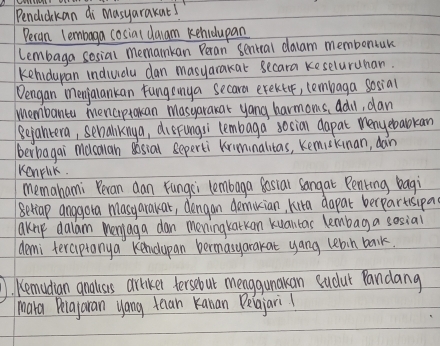 Pendidikan di Masyarakat!
Peran lembaga cosial dalam kehidupan
Lembaga sosial memainkan Peran Sentral dalam membentuk
Kehidupan individu dan masyarakat Secara Keseluruhan.
Dengan menjalankan fungsinya Secara efektif, lembaga Sosial
membantu menciptakan Masyarakat yang harmonis, adil, dan
Sejahtera, Sebaliknya, disfungsi lembaga sosial dapat Menyebabkan
berbagai masalah Sosial Seperti Kriminalitas, Kemiskinan, dan
Konflik.
Memahami Peran dan Fungsi lembaga Sosial Sangat Penting bagi
Setiap anggota Masyarakat, dengan demikian, Kita dapat berpartisipa
aktif dalam menjaga dan meningkatkan kualitas lembaga sosial
demi terciptanya Kehidupan bermasyarakat yang lebih baik.
Kemudian analisis artikel tersebut menggunakan Sudut Pandang
mata Pelajaran yang telah Kalian Pelajari!